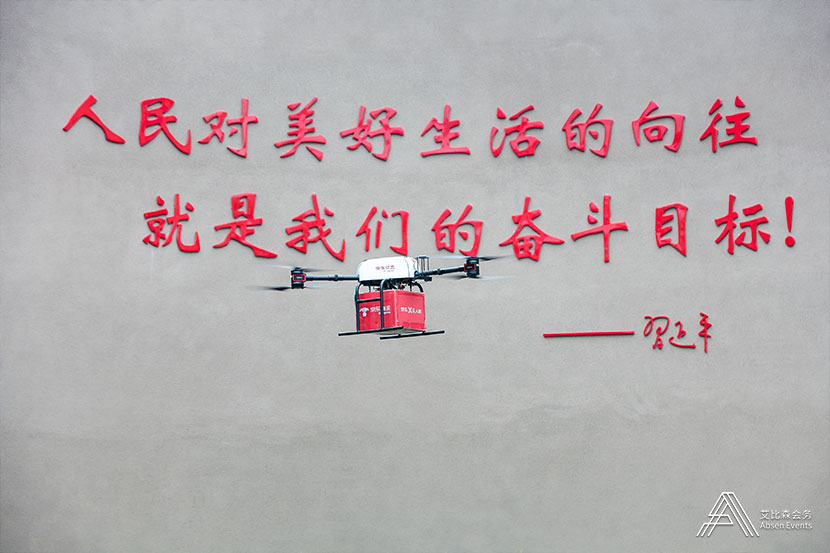 人民对美好生活的向往
就是我们的奋斗目标!
——习近平
艾比森会务
Absen Events